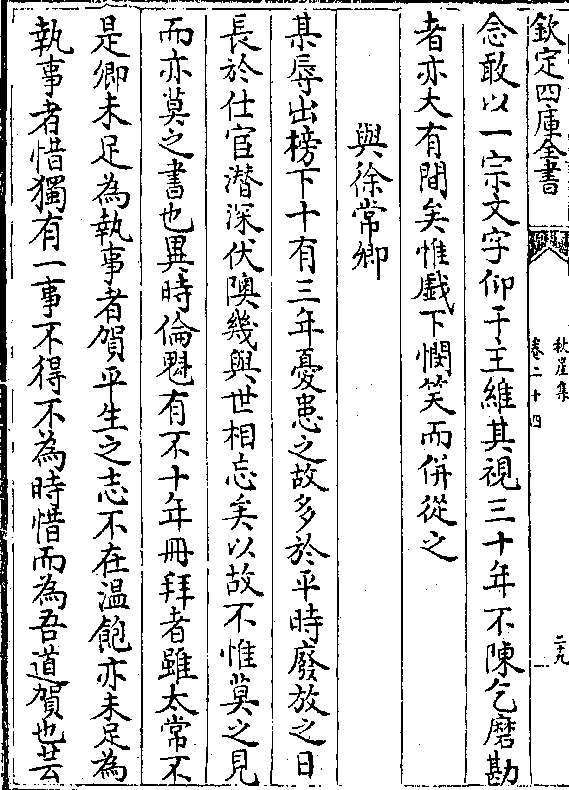 欽定四庫全書
秋崖集
卷二十四
二九
念敢以一宗文字仰干王維其視三十年不陳乞磨勘
者亦大有間矣惟戲下憫笑而併從之
與徐常卿
某辱出榜下十有三年憂患之故多於平時廢放之日
長於仕宦潛深伏隩幾與世相忘矣以故不惟莫之見
而亦莫之書也異時倫魁有不十年冊拜者雖太常不
是卿未足為執事者賀平生之志不在温飽亦未足為
執事者惜獨有一事不得不為時惜而為吾道賀也芸